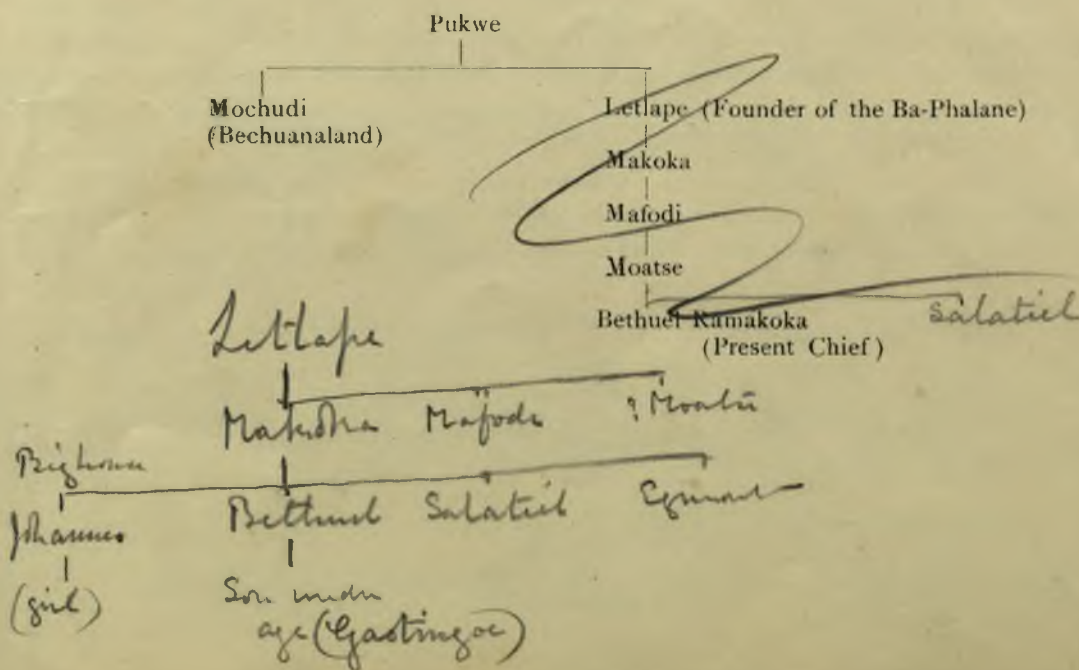 Pukwe
Mochudi
(Bechuanaland)
Letlape (Founder of the Ba-Phalane)
Makoka
Mafodi
Moatse
Bethuel Ramakoka
(Present Chief)
Salatiel
Letlape
Makoka Mafodi ? Moatse
Big house
Johannes
(girl)
Bethuel Salatiel Egmont
Son under
age (Gaotingoe)